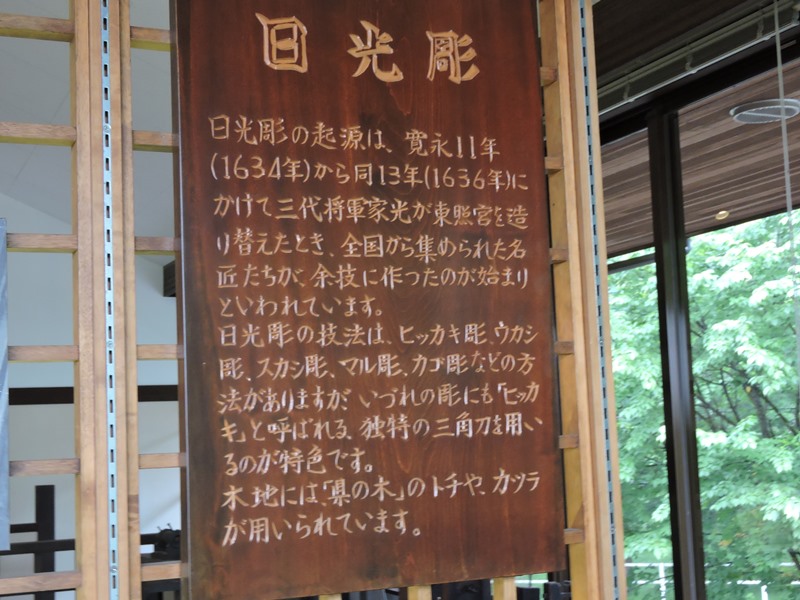 日光彫
日光彫の起源は、寛永11年
(1634年)から同13年(1636年)に
かけて三代将軍家光が東照宮を造
り替えたとき、全国から集められた名
匠たちが、余技に作ったのが始まり
といわれています。
日光彫の技法は、ヒッカキ彫、ウカシ
彫、スカシ彫、マル彫、カゴ彫などの方
法がありますが、いづれの彫にも「ヒッカ
キ」と呼ばれる、独特の三角刀を用い
るのが特色です。
木地には、「県の木」のトチや、カツラ
が用いられています。